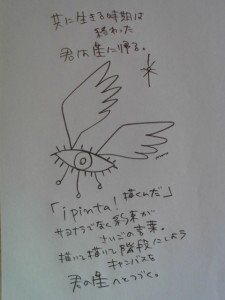 共に生きる時期は
終わった
君は星に帰る。
「ipinta! 描くんだ」
サヨナラでなく約束が
さいごの言葉。
描いて描いて階段にしよう
キャンバスを
君の星へとつづく。